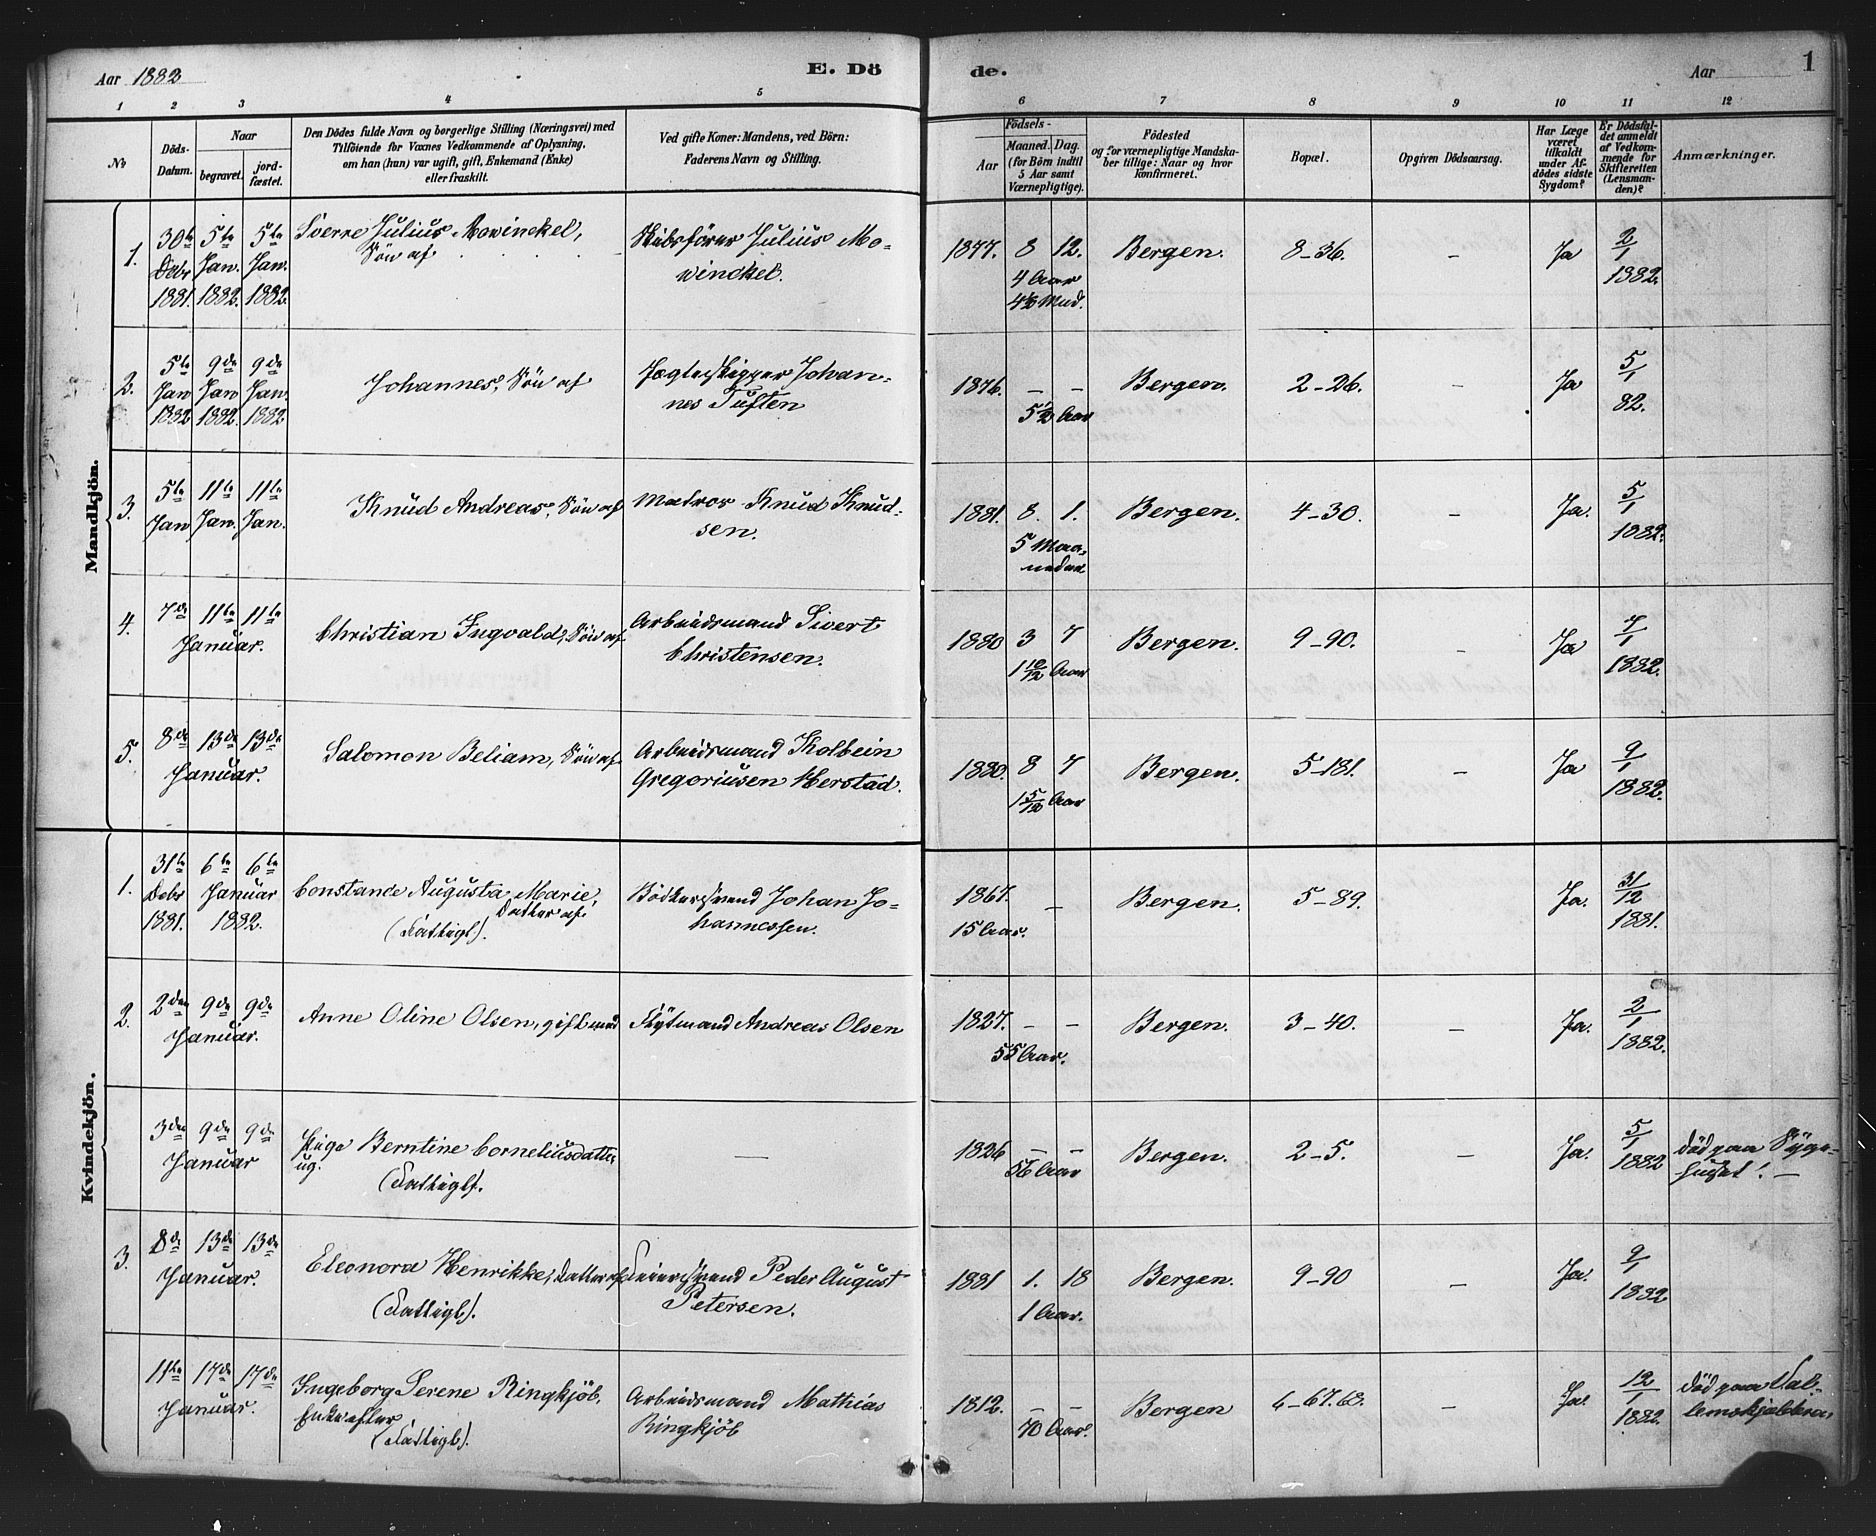 Aar 1882
E. Dö
de.
Aar
1
1 2 3 4 5 6 7 8 9 10 11 12
No
Döds-Datum.
Naar
begravet.
jordfæstet.
Den Dödes fulde Navn og borgerlige Stilling (Næringsvei) med
Tilföiende for Voxnes Vedkommende af Oplysning,
om han (hun) var ugift, gift, Enkemand (Enke)
eller fraskilt.
Ved gifte Koner: Mandens, ved Börn:
Faderens Navn og Stilling.
Födsels-
Aar
Maaned. Dag.
(for Börn indtil
5 Aar samt
Værnepligtige).
Födested
og for værnepligtige Mandskaber tillige: Naar og hvor
konfirmeret.
Bopæl.
Opgiven Dödsaarsag.
Har Læge
været
tilkaldt
under Afdödes sidste
Sygdom?
Er Dödsfaldet anmeldt
af Vedkommende for
Skifteretten
(Lensmanden)?
Anmærkninger.
Mandkjön.
1. 30te Debr 1881. 5te Jan. 1882. 5te Jan. 1882. Sverre Julius Mowinckel, Sön af Skibsförer Julius Mowinckel. 1877. 8 12. 4 Aar 4½ Mnd. Bergen. 8-36. - Ja 2/1 1882.
2. 5te Jan 1882 9de Jan 1882. 9de Jan. 1882 Johannes, Sön af Jægteskipper Johannes Tuften 1876. - - 5½ Aar Bergen. 2-26. - Ja 5/1 82.
3. 5te Jan 11te Jan. 11te Jan. Knud Andreas, Sön af Matros Knud Knudsen. 1881. 8. 1. 5 Maaneder Bergen. 4-30. - Ja. 5/1 1882.
4. 7de 11te 11te Januar. Christian Ingvald, Sön af Arbeidsmand Sivert Christensen. 1880 3 7 1 10/12 Aar Bergen. 9-90. - Ja 7/1 1882.
5. 8de 13de 13de Januar. Salomon Beliam, Sön af Arbeidsmand Kolbein Gregoriusen Herstad. 1880. 8 7 1 5/12 Aar Bergen. 5-181. - Ja 9/1 1882.
Kvindekjön.
1. 31te Debr 1881. 6te 6te Januar 1882. Constance Augusta Marie, Datter af (Fattigl). Bödkersvend Johan Johannessen. 1867. - 15 Aar. Bergen. 5-89. - Ja. 31/12 1881.
2. 2den 9de 9de Januar. Anne Oline Olsen, gift med Flytmand Andreas Olsen 1827. - - 55 Aar. Bergen. 3-40. - Ja. 2/1 1882.
3den 9de 9de Januar Pige Berntine Corneliusdatter ug. (Fattigl). - 1826 - - 56 Aar Bergen. 2-5. - Ja. 5/1 1882 död paa Sygehuset! -
3. 8de 13de 13de Januar. Eleonora Henrikke, Datter af (Fattigl). Feiersvend Peder August Petersen. 1881 1. 18 1 Aar. Bergen. 9-90 - Ja. 9/1 1882
11te 17de 17de Januar. Ingeborg Serene Ringkjöb, Enke efter (Fattigl). Arbeidsmand Mathias Ringkjöb 1812. - - 70 Aar. Bergen 6-67.68. - Ja. 12/1 1882. död paa